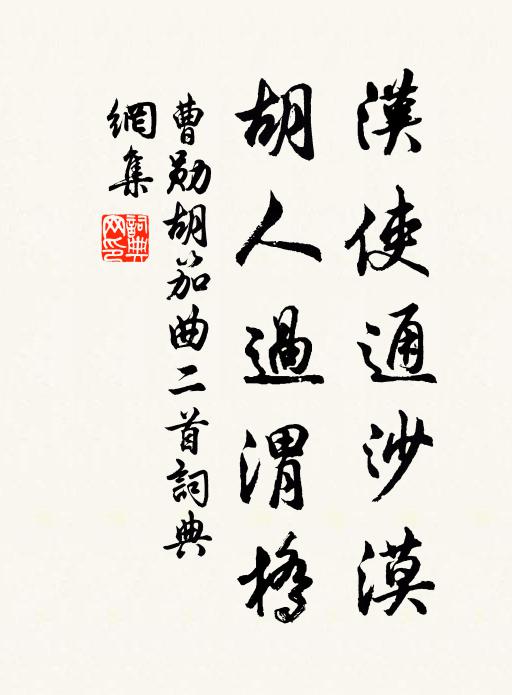 漢使通沙漠
胡人過渭橋
曹勛胡笳曲二首詞典
網集
詞典網印